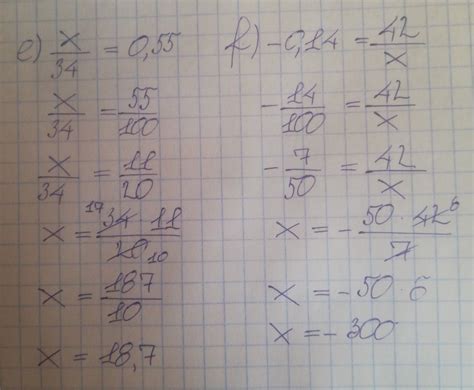 e) x/34 = 0,55
x/34 = 55/100
x/34 = 11/20
x = 34 · 11/20 17 10
x = 187/10
x = 18,7
f) -0,14 = 42/x
-14/100 = 42/x
-7/50 = 42/x
x = -50 · 42/7 6
x = -50 · 6
x = -300